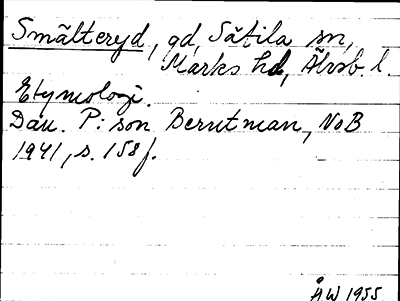 Smälteryd, gd, Sätila sn,
Marks hd, Älvsb. l.
Etymologi.
Dan. P:son Berntman, NoB
1941, s. 158 f.
ÅW 1955